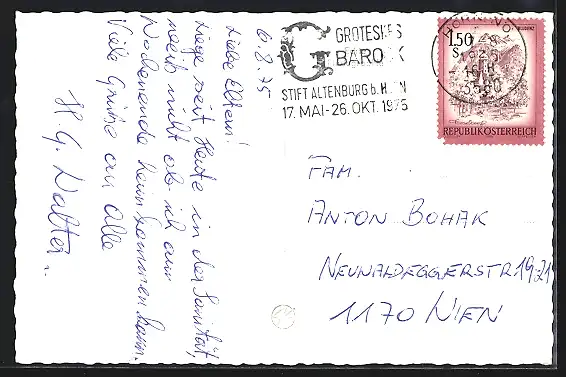 6.8.75
Liebe Eltern!
Liege seit Heute in der Sanität,
weiß nicht ob ich am
Wochenende heim kommen kann.
Viele Grüße an Alle
H. G. Walter..
GROTESKES
BAROCK
STIFT ALTENBURG b. HORN
17. MAI - 26. OKT. 1975
HORN, NÖ
3580
1.50
S
BLUDENZ
REPUBLIK ÖSTERREICH
FAM.
ANTON BOHAK
NEUWALDEGGERSTR 19/21
1170 WIEN